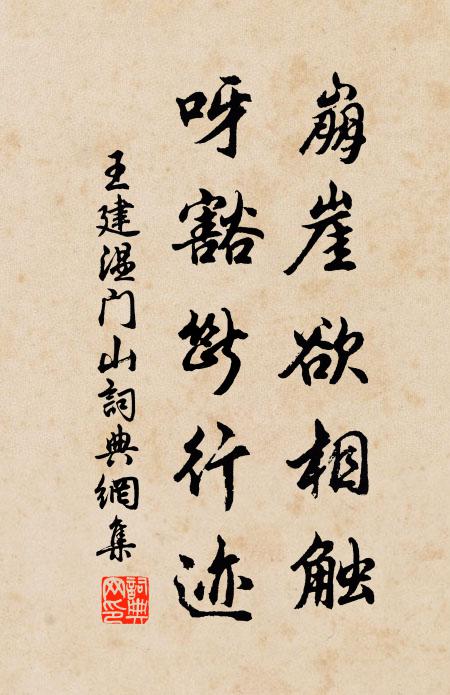 崩崖欲相触
呀豁断行迹
王建温门山词典網集
詞典网印